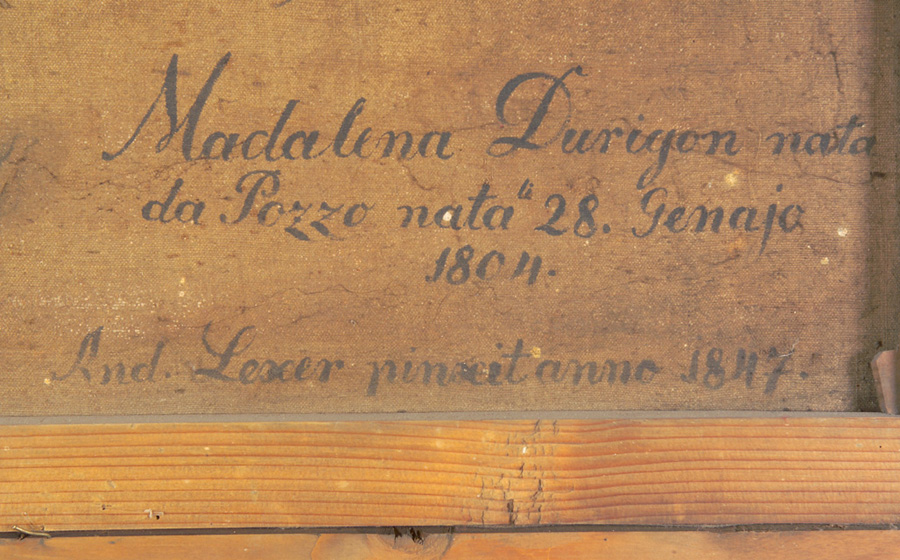 Madalena Durigon nata
da Pozzo nata" 28. Genajo
1804.
And. Lexer pinxit anno 1847.